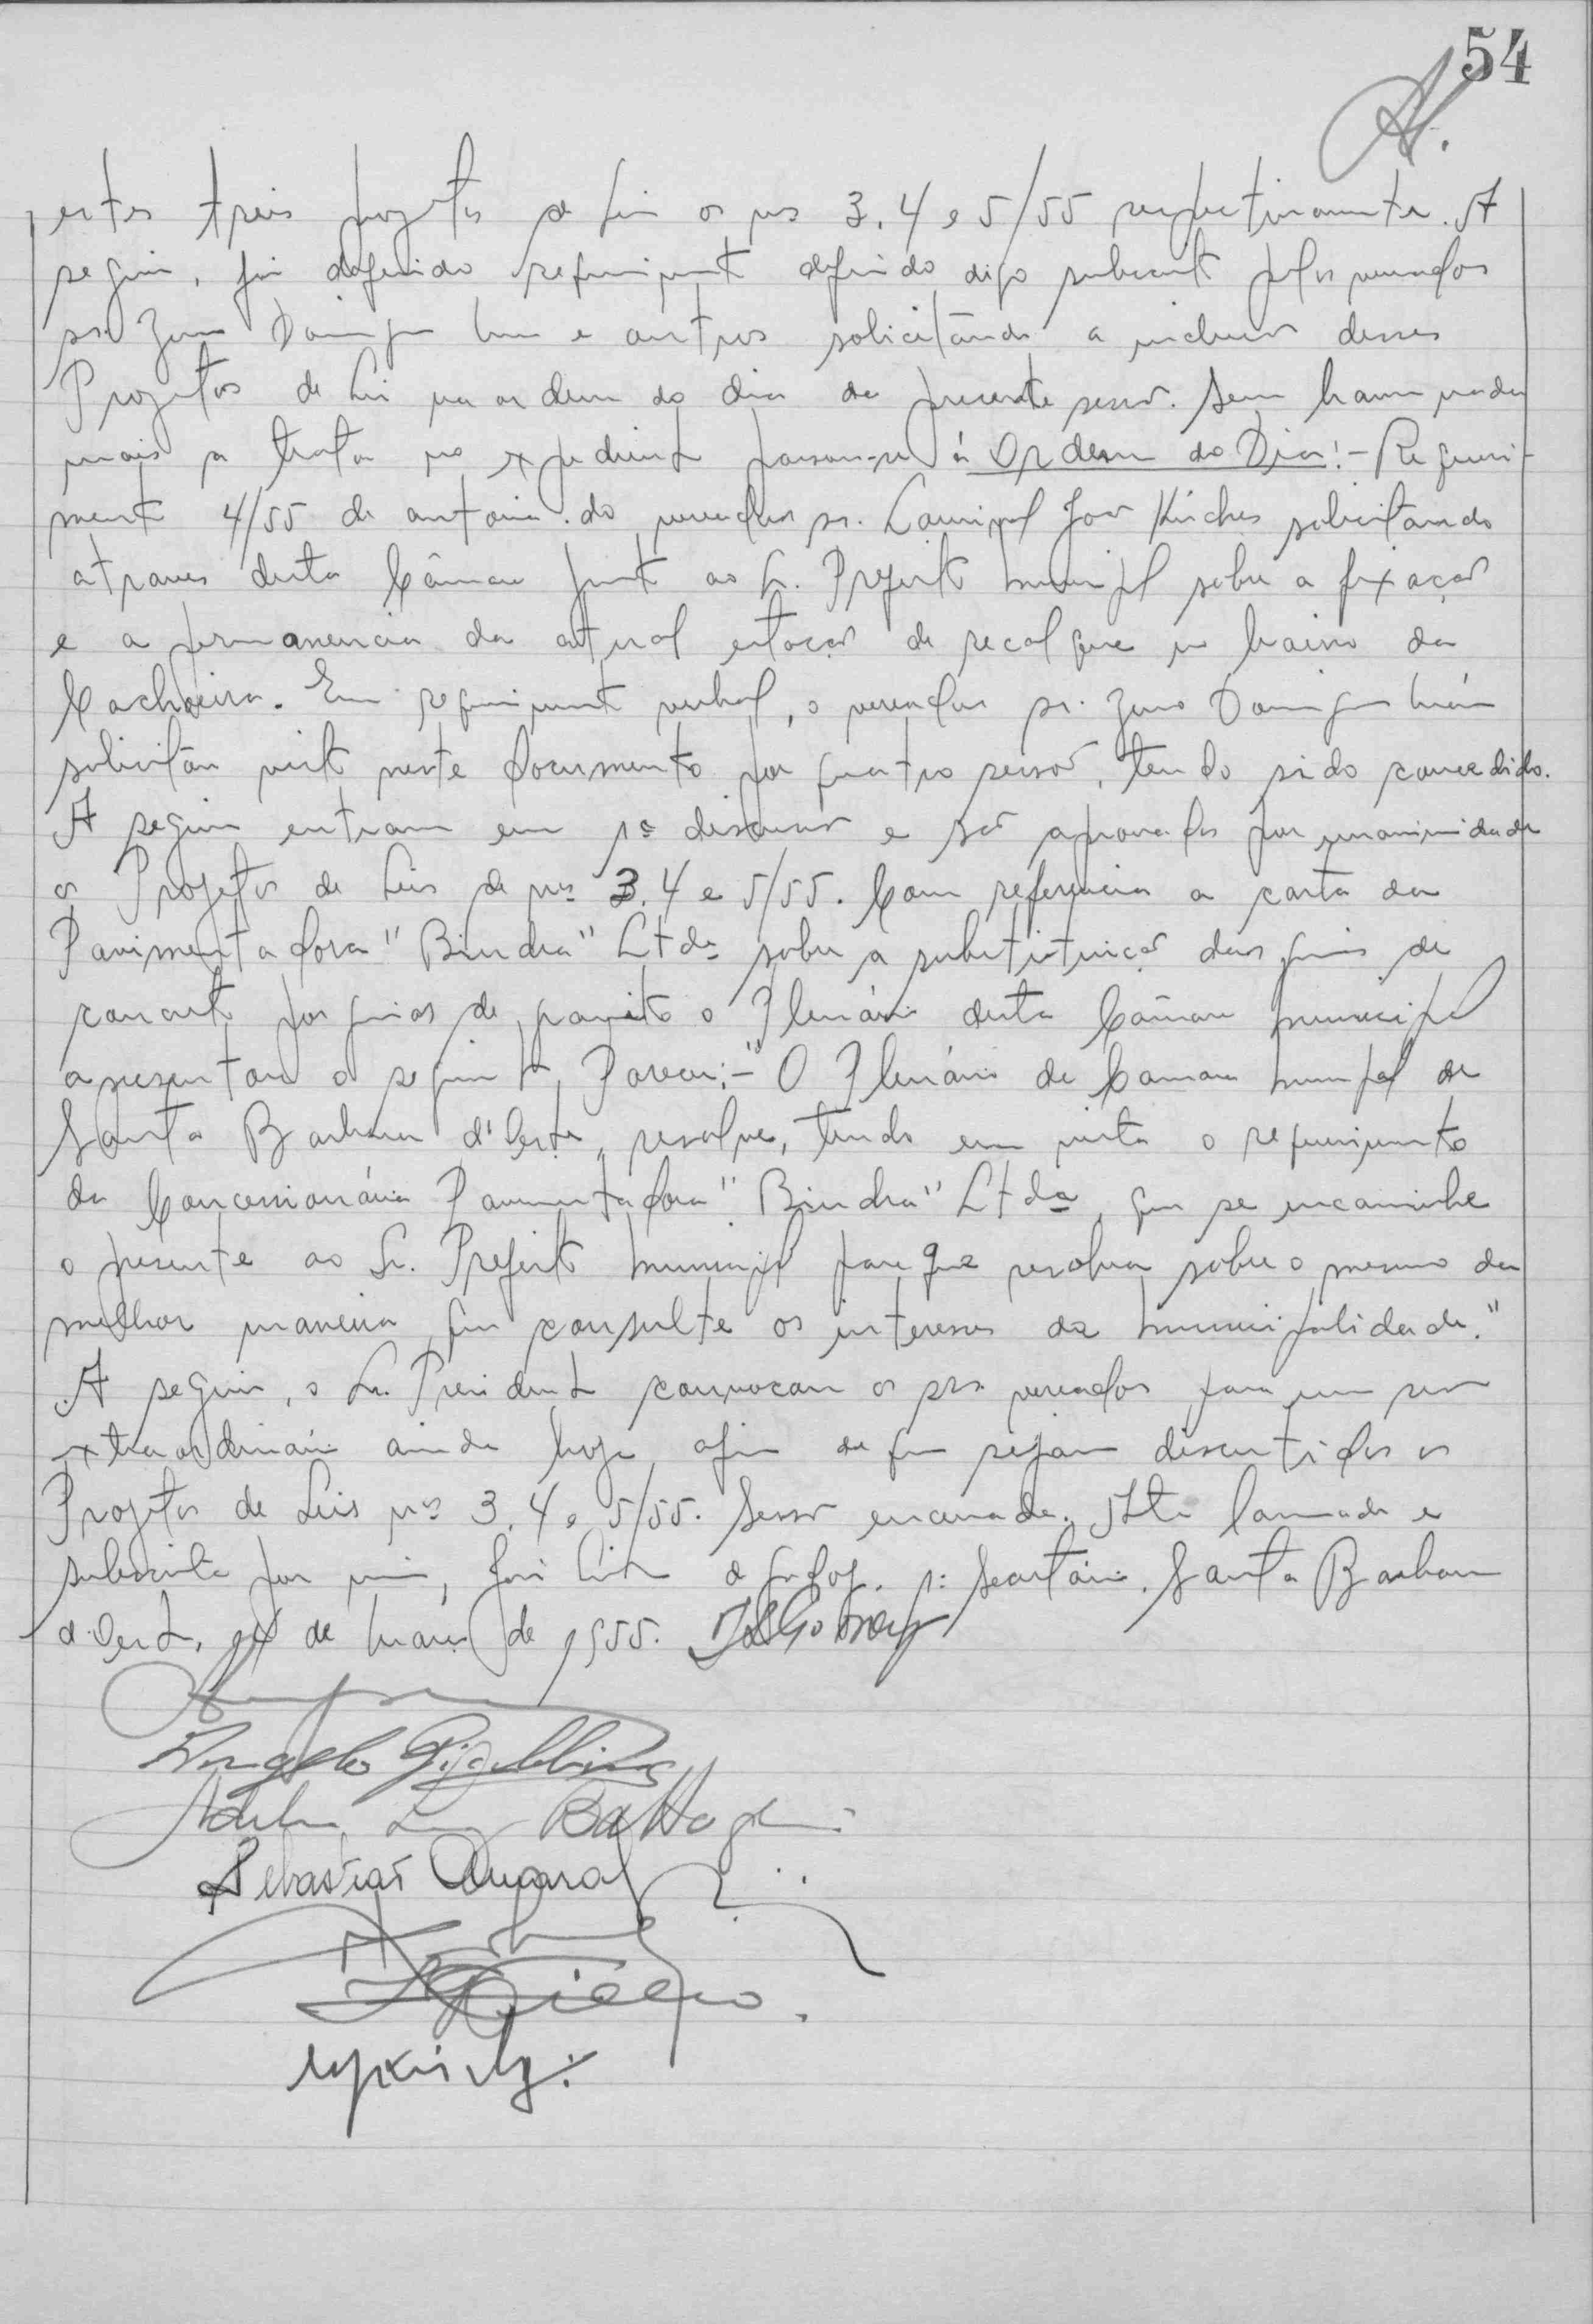 54
estes treis projetos de Lei os nos 3, 4 e 5/55 respectivamente. A
seguir, foi deferido requerimento deferido digo subscrito pelos vereadores
srs. Zeno Domingues Maia e outros solicitando a inclusão desses
Projetos de Lei na ordem do dia da presente sessão. Sem haver nada
mais a tratar no expediente passou-se á Ordem do Dia:- Requeri-
mento 4/55 de autoria do vereador sr. José Kirches solicitando
atraves desta Câmara junto ao Sr. Prefeito Municipal sobre a fixação
e a permanencia da atual estação de recalque no bairro da
Cachoeira. Em requerimento verbal, o vereador sr. Zeno Domingues Maia
solicitou vista neste documento por quatro sessões, tendo sido concedido.
A seguir entram em 1ª discussão e são aprovados por unanimidade
os Projetos de Leis de nos 3, 4 e 5/55. Com referencia a carta da
Pavimentadora "Bindra" Ltda sobre a substituição das guias de
concreto por guias de granito o Plenário desta Câmara Municipal
apresentou o seguinte Parecer:- "O Plenário da Camara Municipal de
Santa Barbara d'Oeste, resolve, tendo em vista o requerimento
da Concessionária Pavimentadora "Bindra" Ltda, que se encaminhe
o presente ao Sr. Prefeito Municipal para que resolva sobre o mesmo da
melhor maneira que consulte os interesses da Municipalidade."
A seguir, o Sr. Presidente convocou os srs. vereadores para uma sessão
extraordinária ainda hoje afim de que sejam discutidos os
Projetos de Leis nos 3, 4 e 5/55. Sessão encerrada. Ata lavrada e
subscrita por mim, José 1º Secretário. Santa Barbara
d'Oeste, de Março de 1955.
Angelo
Battag
Sebastião Amaral